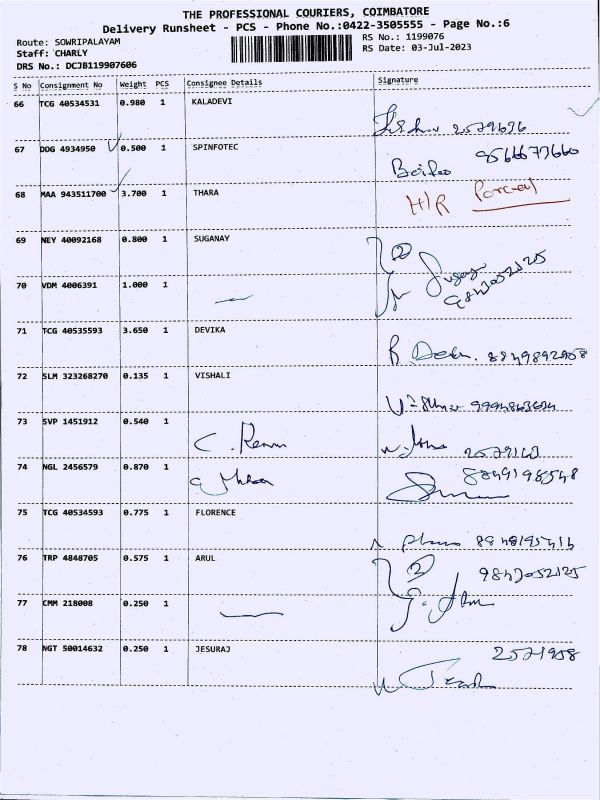 THE PROFESSIONAL COURIERS, COIMBATORE
Delivery Runsheet - PCS - Phone No.:0422-3505555 - Page No.:6
Route: SOWRIPALAYAM
RS No.: 1199076
Staff: CHARLY
RS Date: 03-Jul-2023
DRS No.: DCJB119907606
S No Consignment No Weight PCS Consignee Details Signature
66 TCG 40534531 0.980 1 KALADEVI
2579696
67 DDG 4934950 0.500 1 SPINFOTEC
9566677660
68 MAA 943511700 3.700 1 THARA
H/R Parcel
69 NEY 40092168 0.800 1 SUGANAY
2
70 VDM 4006391 1.000 1
9843052125
71 TCG 40535593 3.650 1 DEVIKA
72 SLM 323268270 0.135 1 VISHALI
73 SVP 1451912 0.540 1
74 NGL 2456579 0.870 1
8849198548
75 TCG 40534593 0.775 1 FLORENCE
76 TRP 4848705 0.575 1 ARUL
2
9843052125
77 CMM 218008 0.250 1
78 NGT 50014632 0.250 1 JESURAJ
2571958